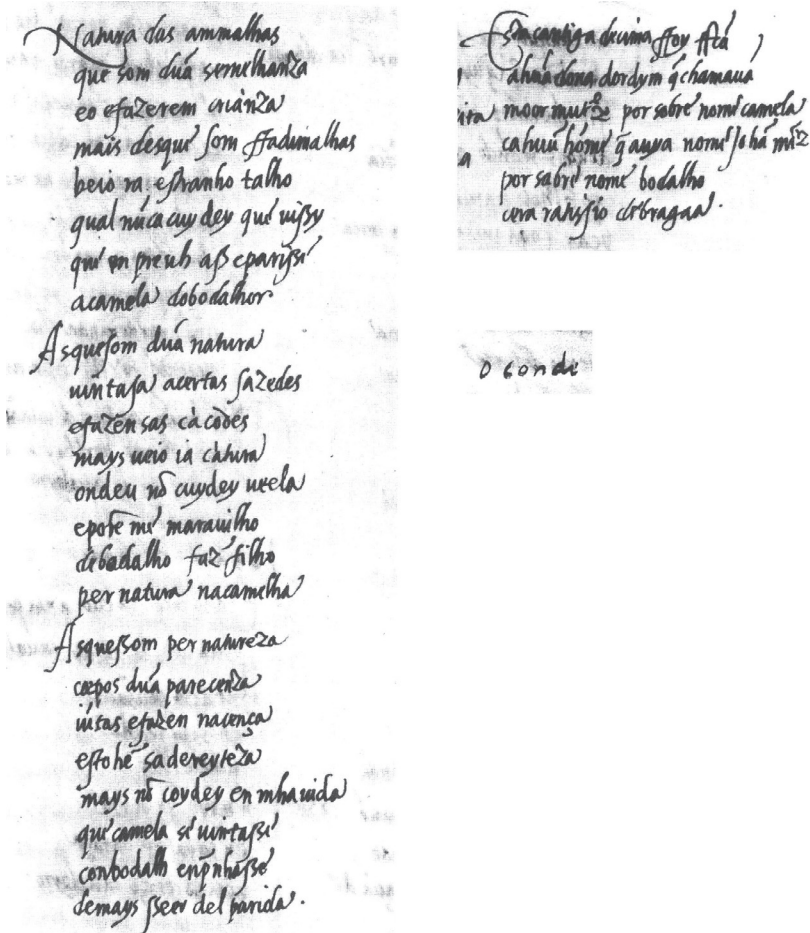 Natura das ammalhas
que som dũa semelhanza
eo efazerem crianza
mais desque som ffadimalhas
beio ra estranho talho
qual nũca cuydey que uissy
que enpreuh ass eparisse
acamela dobodalhor
Asquesom dũa natura
uintasa acertas sazedes
efazensas cacodes
mays ueio ia catura
ondeu nõ cuydey ueela
epote me marauilho
debadalho faz filho
per natura nacamelha
Asquessom per natureza
corpos dũa parecenza
iũtas efazen nacença
esto he sadereyteza
mays nõ coydey en mha uida
que camela se uintasse
conbodalh enpnhasse
demays sseer del parida.
Esta cantiga decima ffoy ffcã
ahuã dona dordym q̃ chamauã
moor por sobre nome camela
cahuũ home q̃ auya nome Johã
por sabre nome bodalho
cera debragaa.
O conde